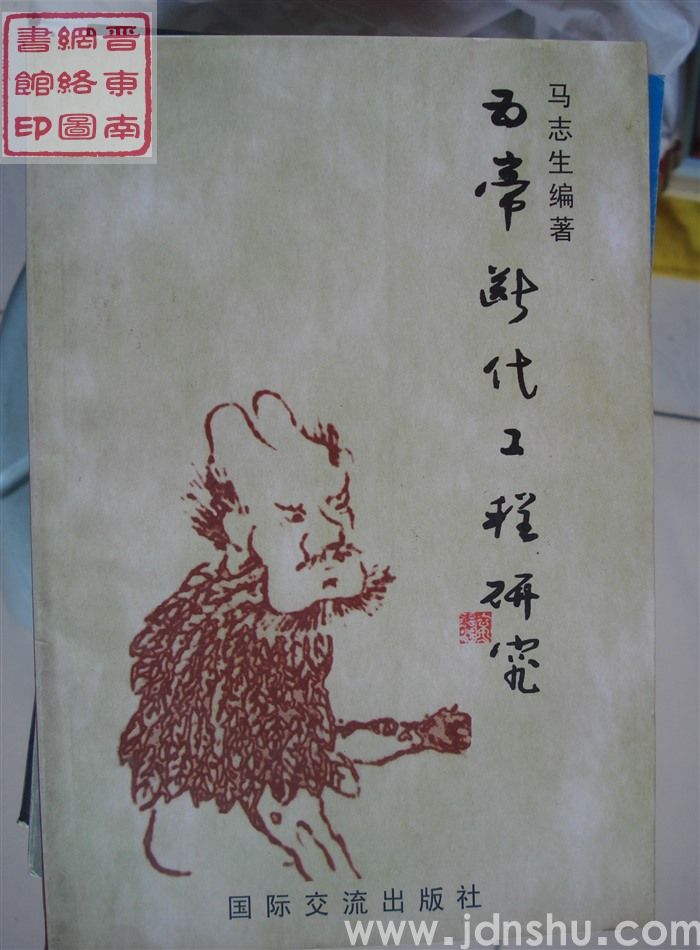 晋東南
網絡圖
書館印
马志生编著
五帝断代工程研究
国际交流出版社
www.jdnshu.com